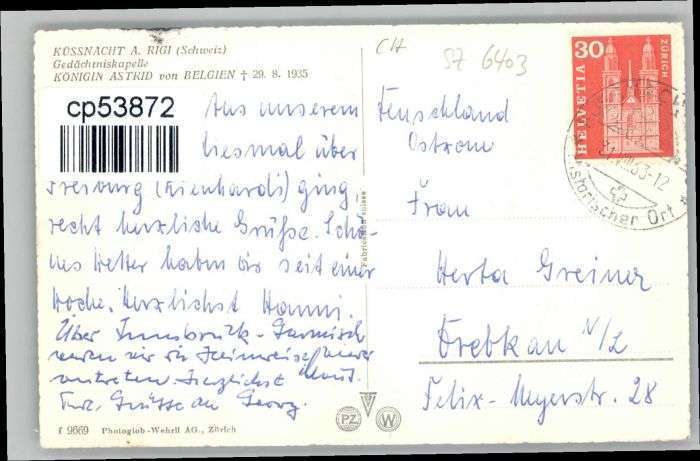 KÜSSNACHT A. RIGI (Schweiz)
Gedächtniskapelle
KÖNIGIN ASTRID von BELGIEN † 29. 8. 1935
cp53872
Aus unserem
diesmal über
Freiburg (Lienhardi) ging
recht herzliche Grüße. Schö-
nes Wetter haben wir seit einer
Woche. Herzlichst Hanni.
Über Innsbruck - Garmisch
werden wir die Heimreise
antreten. Herzlichst
Grüsse an Georg.
f 9669 Photoglob-Wehrli AG., Zürich
Fabrication suisse
PZ W
CH
SZ 6403
Deutschland
Ostzone
Frau
Herta Greiner
Drebkau N/L
Felix-Meyerstr. 28
30
HELVETIA
ZÜRICH
historischer Ort